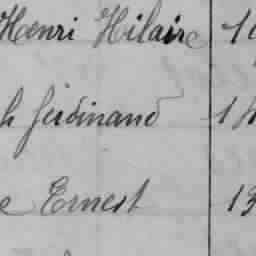 Henri Hilaire 1
h ferdinand 1
e Ernest 13